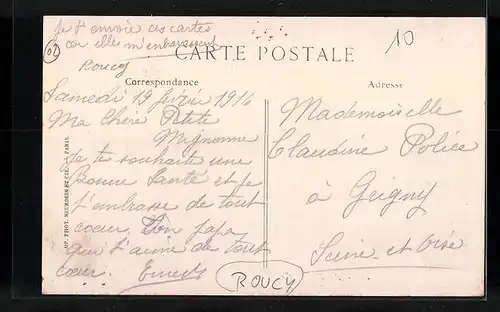 Je t'envoie ces cartes
car elles m'embarrassent
Roucy
02
10
CARTE POSTALE
Correspondance
Adresse
Samedi 19 février 1916
Ma Chère Petite
Mignonne
Je te souhaite une
Bonne Santé et je
t'embrasse de tout
coeur. Ton papa
qui t'aime de tout
coeur. Ernest
ROUCY
Mademoiselle
Claudine Police
à Grigny
Seine et Oise
IMP. PHOT. NEURDEIN ET CIE. - PARIS.